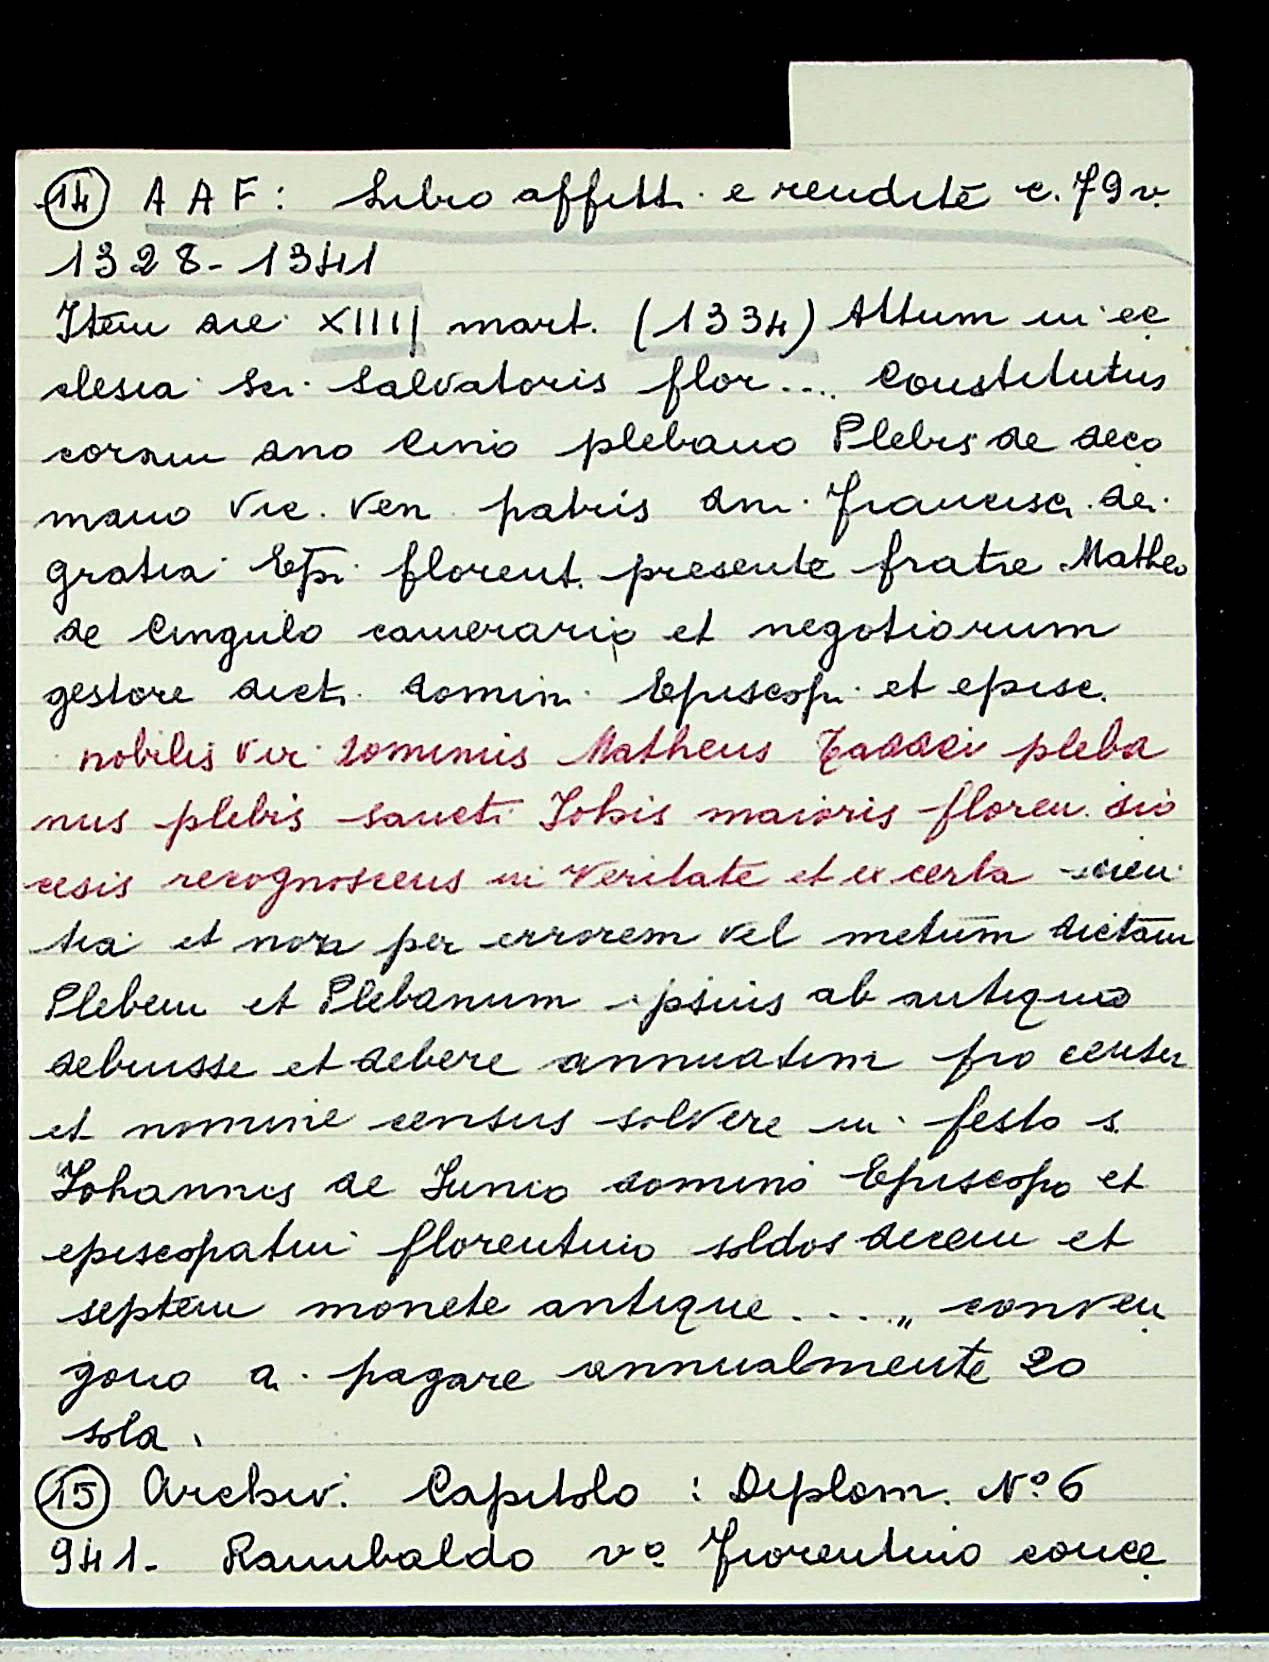 (14) A A F: Libro affitti e rendite c. 79 v.
1328-1341
Item die XIIII mart. (1334) Attum in ec
clesia Sci Salvatoris flor... Constitutus
coram dno Cino plebano Plebis de deco
mano Vic. Ven. patris dni Francisci dei
gratia Epi florent. presente fratre Matheo
de Cingulo camerario et negotiorum
gestore dicti domini Episcopi et episc.
nobilis vir dominus Matheus Taddei pleba
nus plebis sancti Johis maioris floren. dio
cesis recognoscens in veritate et ex certa scien
tia et non per errorem vel metum dictam
Plebem et Plebanum ipsius ab antiquo
debuisse et debere annuatim pro censu
et nomine census solvere in festo s.
Johannis de Junio domino Episcopo et
episcopatui florentino soldos decem et
septem monete antique....„ conven
gono a pagare annualmente 20
soldi.
(15) Archiv. Capitolo: Diplom. N.º 6
941- Rambaldo vº Fiorentino conce